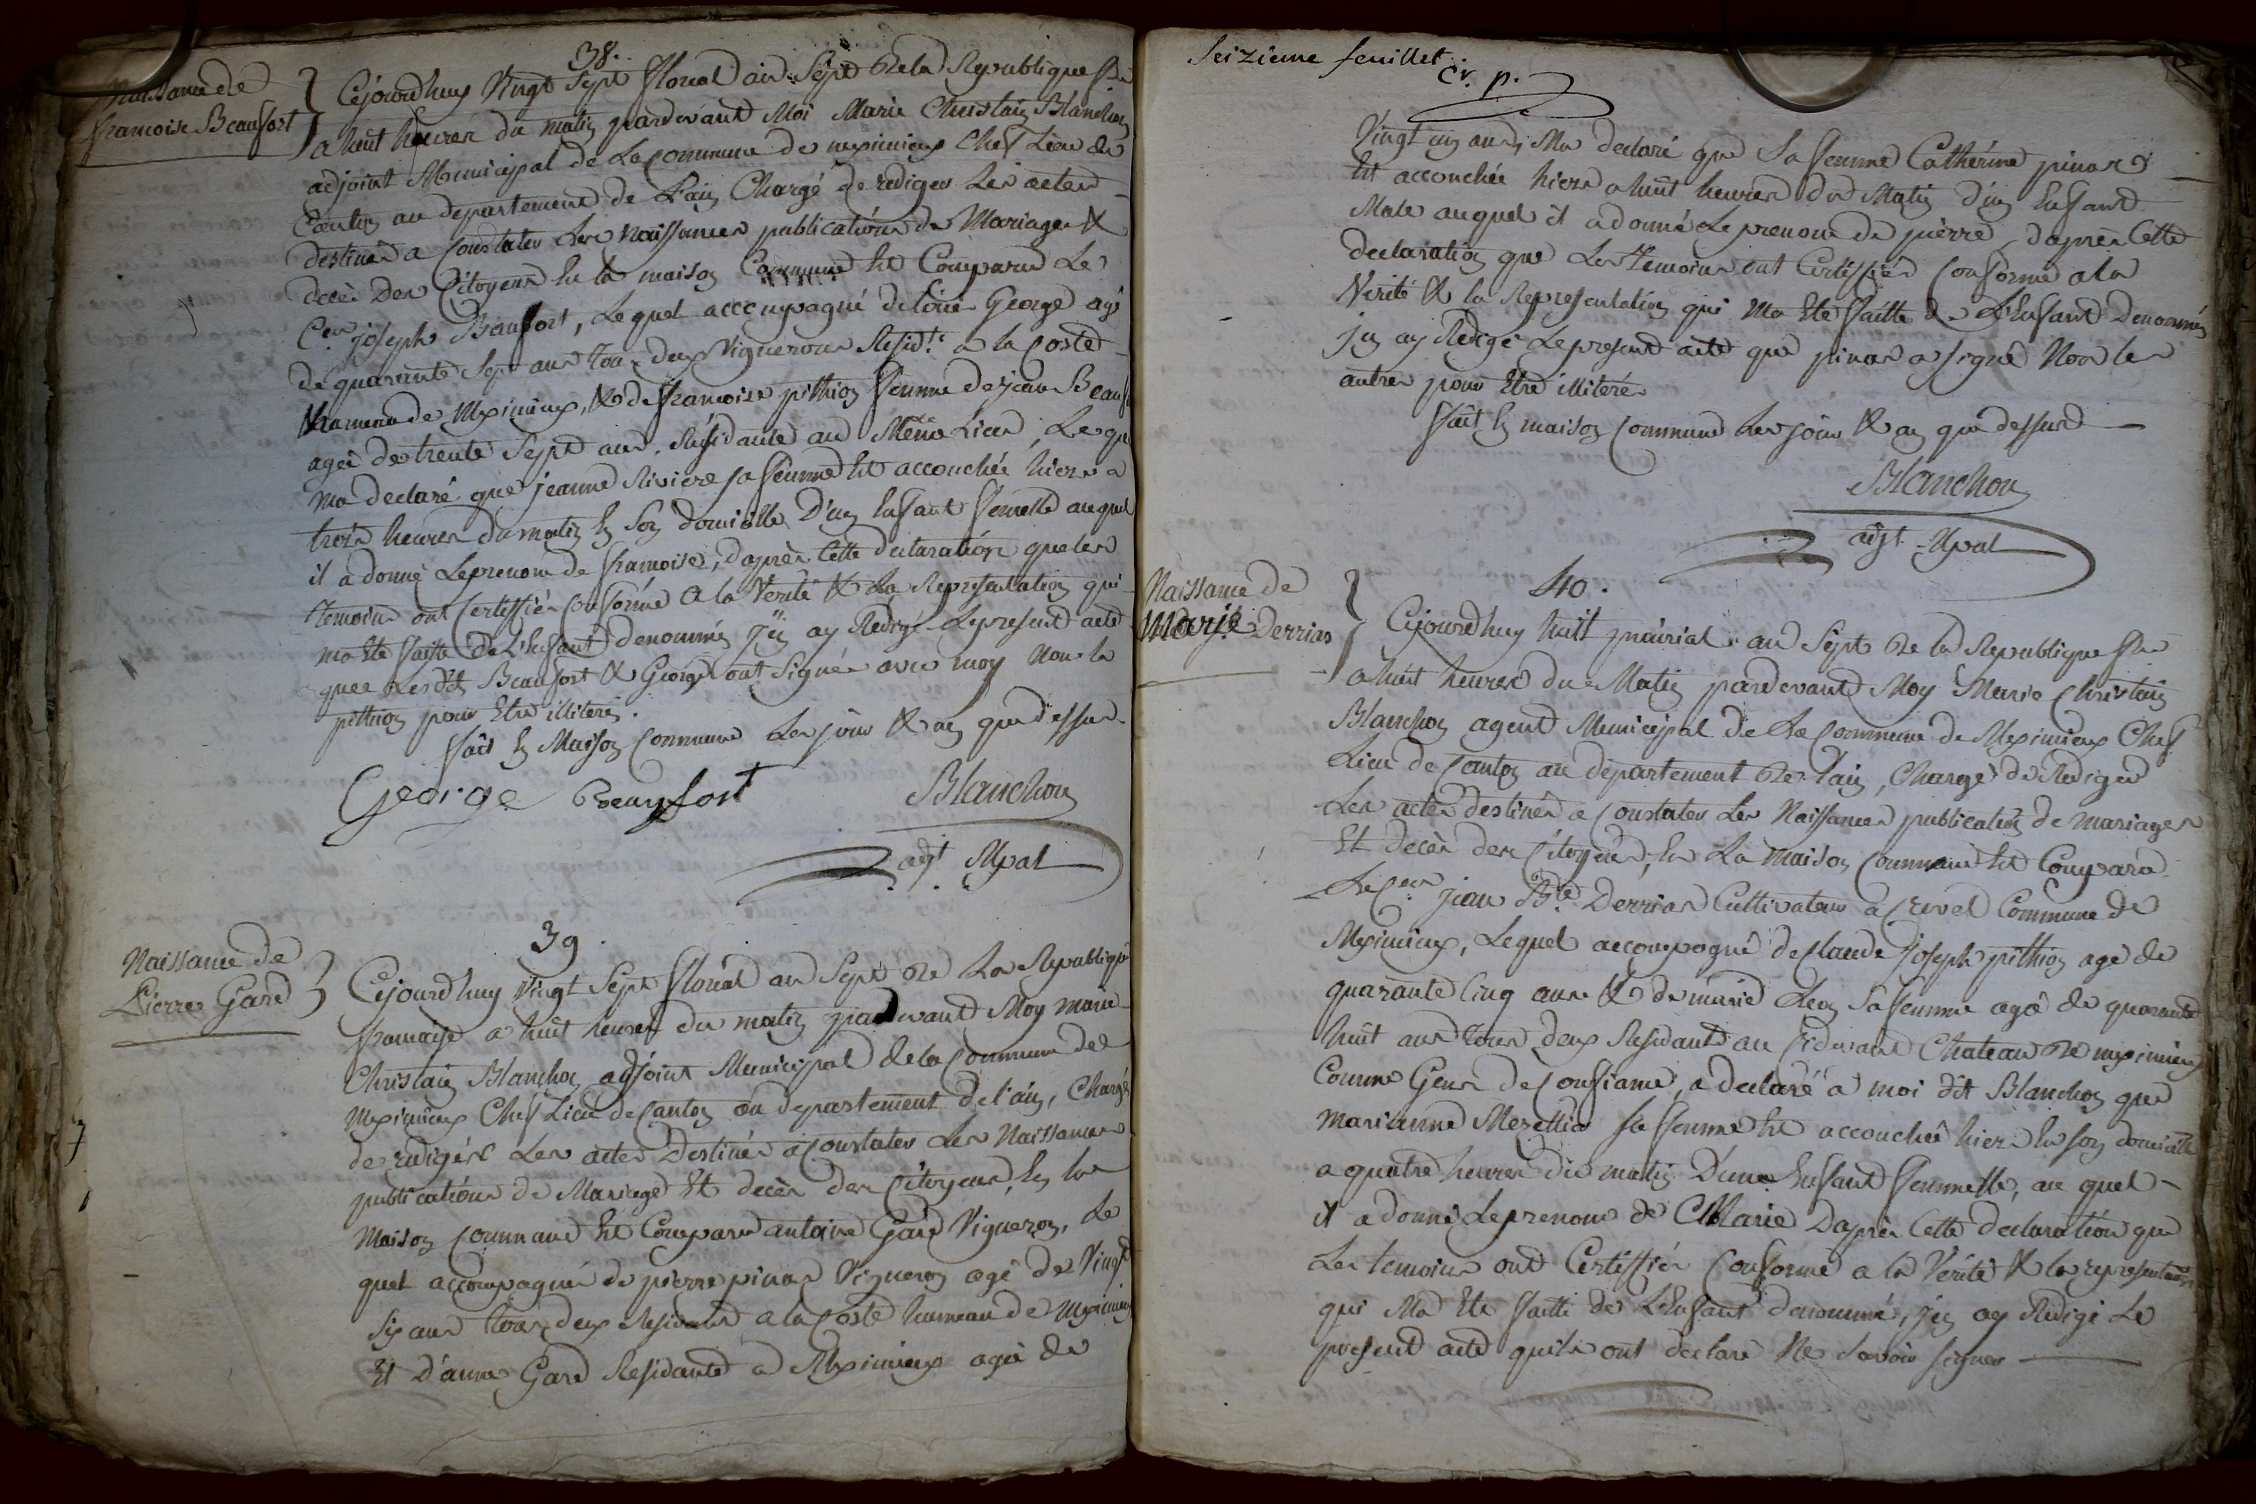 38.
Naissance de
francoise Beaufort
Cejourdhuy Vingt Sept floreal an Sept de la Republique fse
a huit heures du matin pardevant Moi Marie Christain Blanchon
adjoint Municipal de La Commune de meximieux Chef Lieu de
Canton au departement de L'ain Chargé de rediger Les actes
destinés a Constater Les Naissances publications de Mariages &
decès Des Citoyens En la maison Commune Est Comparu Le
Cen joseph Beaufort, Lequel accompagné de George agé
de quarante Sept ans tous deux Vignerons Residts a la Coste
hameau de Meximieux, & de francoise pithion femme de jean Beauf
ageé de trente Sept ans, Residante au Même Lieu, Le qu
ma declaré que jeanne Riviere sa femme Est accouchée hiere a
trois heures du matin En Son domicille, D'un Enfant femelle auquel
il a donné Le prenom de francoise, daprès Cette declaration que les
temoins ont Certiffiés Conforme a la Verité & La Representation qui
ma Eté faitte de L'enfant denommé, j'en ay Redigé Le present acte
que Les dts Beaufort & George ont Signés avec moy Non la
pithion pour Etre illiterée.
fait En Maison Commune Les jour & an que dessus.
George Beaufort Blanchon
adjt Mpal
39.
Naissance de
Pierre Gard
Cejourdhuy Vingt Sept floreal an Sept de La Republique
francaise a huit heures du matin pardevant Moy marie
Christain Blanchon adjoint Municipal de la Commune de
Meximieux Chef Lieu de Canton au departement de l'ain, Chargé
de redigér Les actes Destinés a Constater Les Naissances
publications de Mariage Et decès des Citoyens, En la
Maison Commune Est Comparu antoine Gard Vigneron, Le
quel accompagné de pierre pinas Vigneron agé de Vingt
Six ans tous deux Residants a la Coste hameau de Meximieux
Et D'anne Gard Residante a Meximieux ageé de
Seizieme feuillet.
cr. p.
Vingt un ans, Ma declaré que Sa femme Cathérine pinas
Est accouchée hiere a huit heures du Matin d'un Enfant
Male auquel il a donné Le prenom de pierre, daprès Cette
declaration que Les temoins ont Certiffiés Conforme a la
Verité & la Representation qui Ma Eté faitte de L'Enfant Denommé
j'en ay Redigé Le present acte que pinas a signé Non les
autres pour Etre illiteré.
fait En maison Commune Les jour & an que dessus
Blanchon
adjt Mpal
40.
Naissance de
Marie Derrias
Cejourdhuy huit prairial an Sept de la Republique fse
a huit heures du Matin pardevant Moy Marie Christain
Blanchon agent Municipal de La Commune de Meximieux Chef
Lieu de Canton au departement de l'ain, Chargé de Rediger
Les actes destinés a Constater Les Naissances publication de mariages
Et decès des Citoyens, En La Maison Commune Est Comparu
Le Cen jean Bte Derrias Cultivateur a Crevel Commune de
Meximieux, Lequel accompagné de Claude joseph pithion agé de
quarante Cinq ans & de marie Sa femme ageé de quarante
huit ans tous deux Residants au cidevant Chateau de meximieux
Comme Gens de Confiance, a declaré a moi dit Blanchon que
Marianne sa femme Est accouchée hier En son domicille
a quatre heures du matin D'une Enfant femmelle, au quel
il a donné Le prenom de Marie Daprès Cette declaration que
Les temoins ont Certiffiés Conforme a la Vérité & la representation
qui Ma Eté faitte de L'Enfant denommé, j'en ay Redigé Le
present acte quils ont declaré Ne Savoir signer